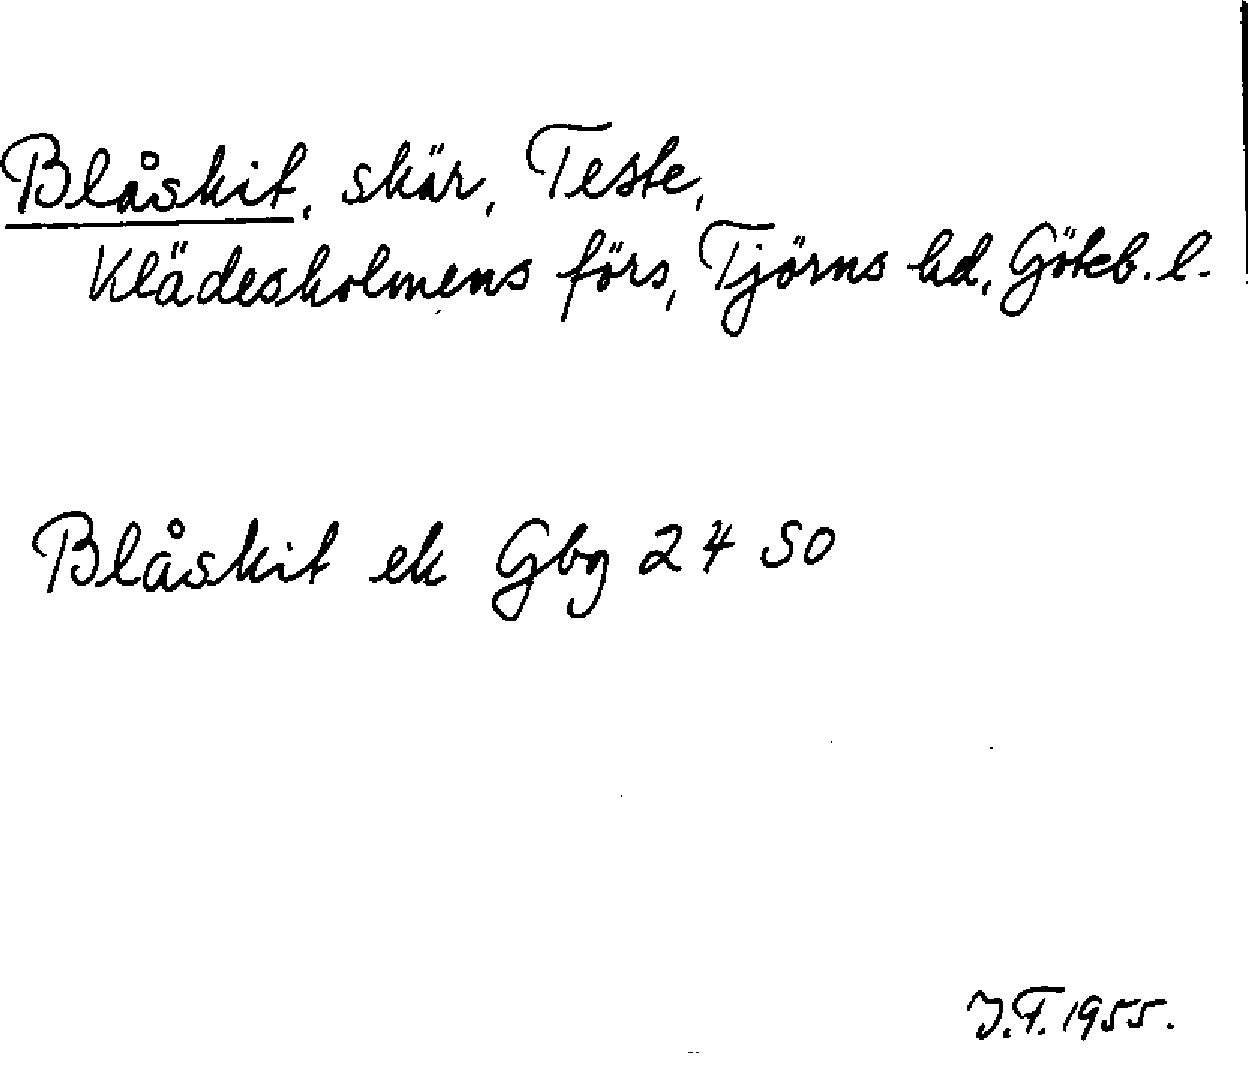 Blåskit, skär, Teste,
Klädesholmens förs, Tjörns hd, Göteb. l.
Blåskit ek Gbg 24 SO
J.F. 1955.